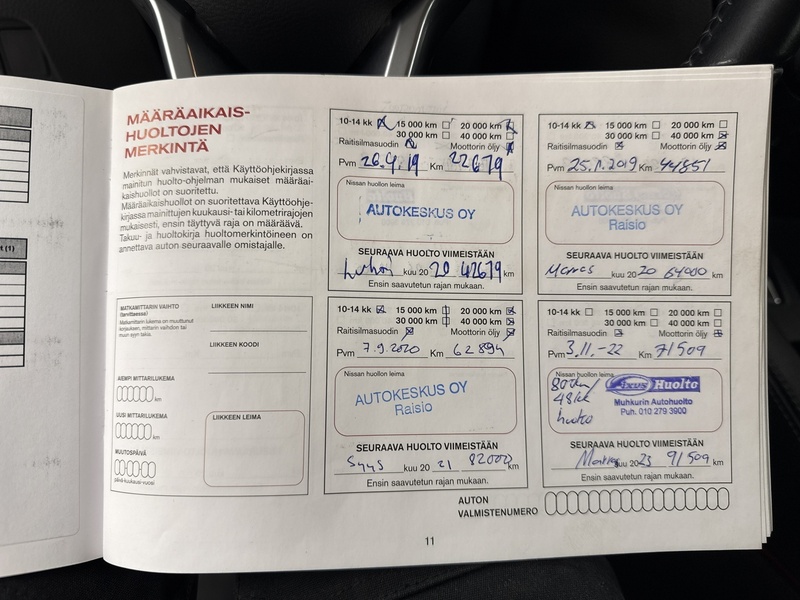 MÄÄRÄAIKAIS-
HUOLTOJEN
MERKINTÄ
Merkinnät vahvistavat, että Käyttöohjekirjassa
mainitun huolto-ohjelman mukaiset määräai-
kaishuollot on suoritettu.
Määräaikaishuollot on suoritettava Käyttöohje-
kirjassa mainittujen kuukausi- tai kilometrirajojen
mukaisesti, ensin täyttyvä raja on määräävä.
Takuu- ja huoltokirja huoltomerkintöineen on
annettava auton seuraavalle omistajalle.
MATKAMITTARIN VAIHTO
(tarvittaessa)
Matkamittarin lukema on muuttunut
korjauksen, mittarin vaihdon tai
muun syyn takia.
AIEMPI MITTARILUKEMA
km
UUSI MITTARILUKEMA
km
MUUTOSPÄIVÄ
päivä-kuukausi-vuosi
LIIKKEEN NIMI
LIIKKEEN KOODI
LIIKKEEN LEIMA
10-14 kk 15 000 km 20 000 km
30 000 km 40 000 km
Raitisilmasuodin Moottorin öljy
Pvm 26.4.19 Km 22679
Nissan huollon leima
AUTOKESKUS OY
SEURAAVA HUOLTO VIIMEISTÄÄN
kuu 20 20 42679 km
Ensin saavutetun rajan mukaan.
10-14 kk 15 000 km 20 000 km
30 000 km 40 000 km
Raitisilmasuodin Moottorin öljy
Pvm 25.11.2019 Km 44851
Nissan huollon leima
AUTOKESKUS OY
Raisio
SEURAAVA HUOLTO VIIMEISTÄÄN
Marras kuu 20 20 64000 km
Ensin saavutetun rajan mukaan.
10-14 kk 15 000 km 20 000 km
30 000 km 40 000 km
Raitisilmasuodin Moottorin öljy
Pvm 7.9.2020 Km 62894
Nissan huollon leima
AUTOKESKUS OY
Raisio
SEURAAVA HUOLTO VIIMEISTÄÄN
Syys kuu 20 21 82000 km
Ensin saavutetun rajan mukaan.
10-14 kk 15 000 km 20 000 km
30 000 km 40 000 km
Raitisilmasuodin Moottorin öljy
Pvm 3.11.-22 Km 71509
Nissan huollon leima
80tkm/
48kk
huolto
Fixus Huolto
Muhkurin Autohuolto
Puh. 010 279 3900
SEURAAVA HUOLTO VIIMEISTÄÄN
Marras kuu 20 23 91509 km
Ensin saavutetun rajan mukaan.
AUTON
VALMISTENUMERO
11